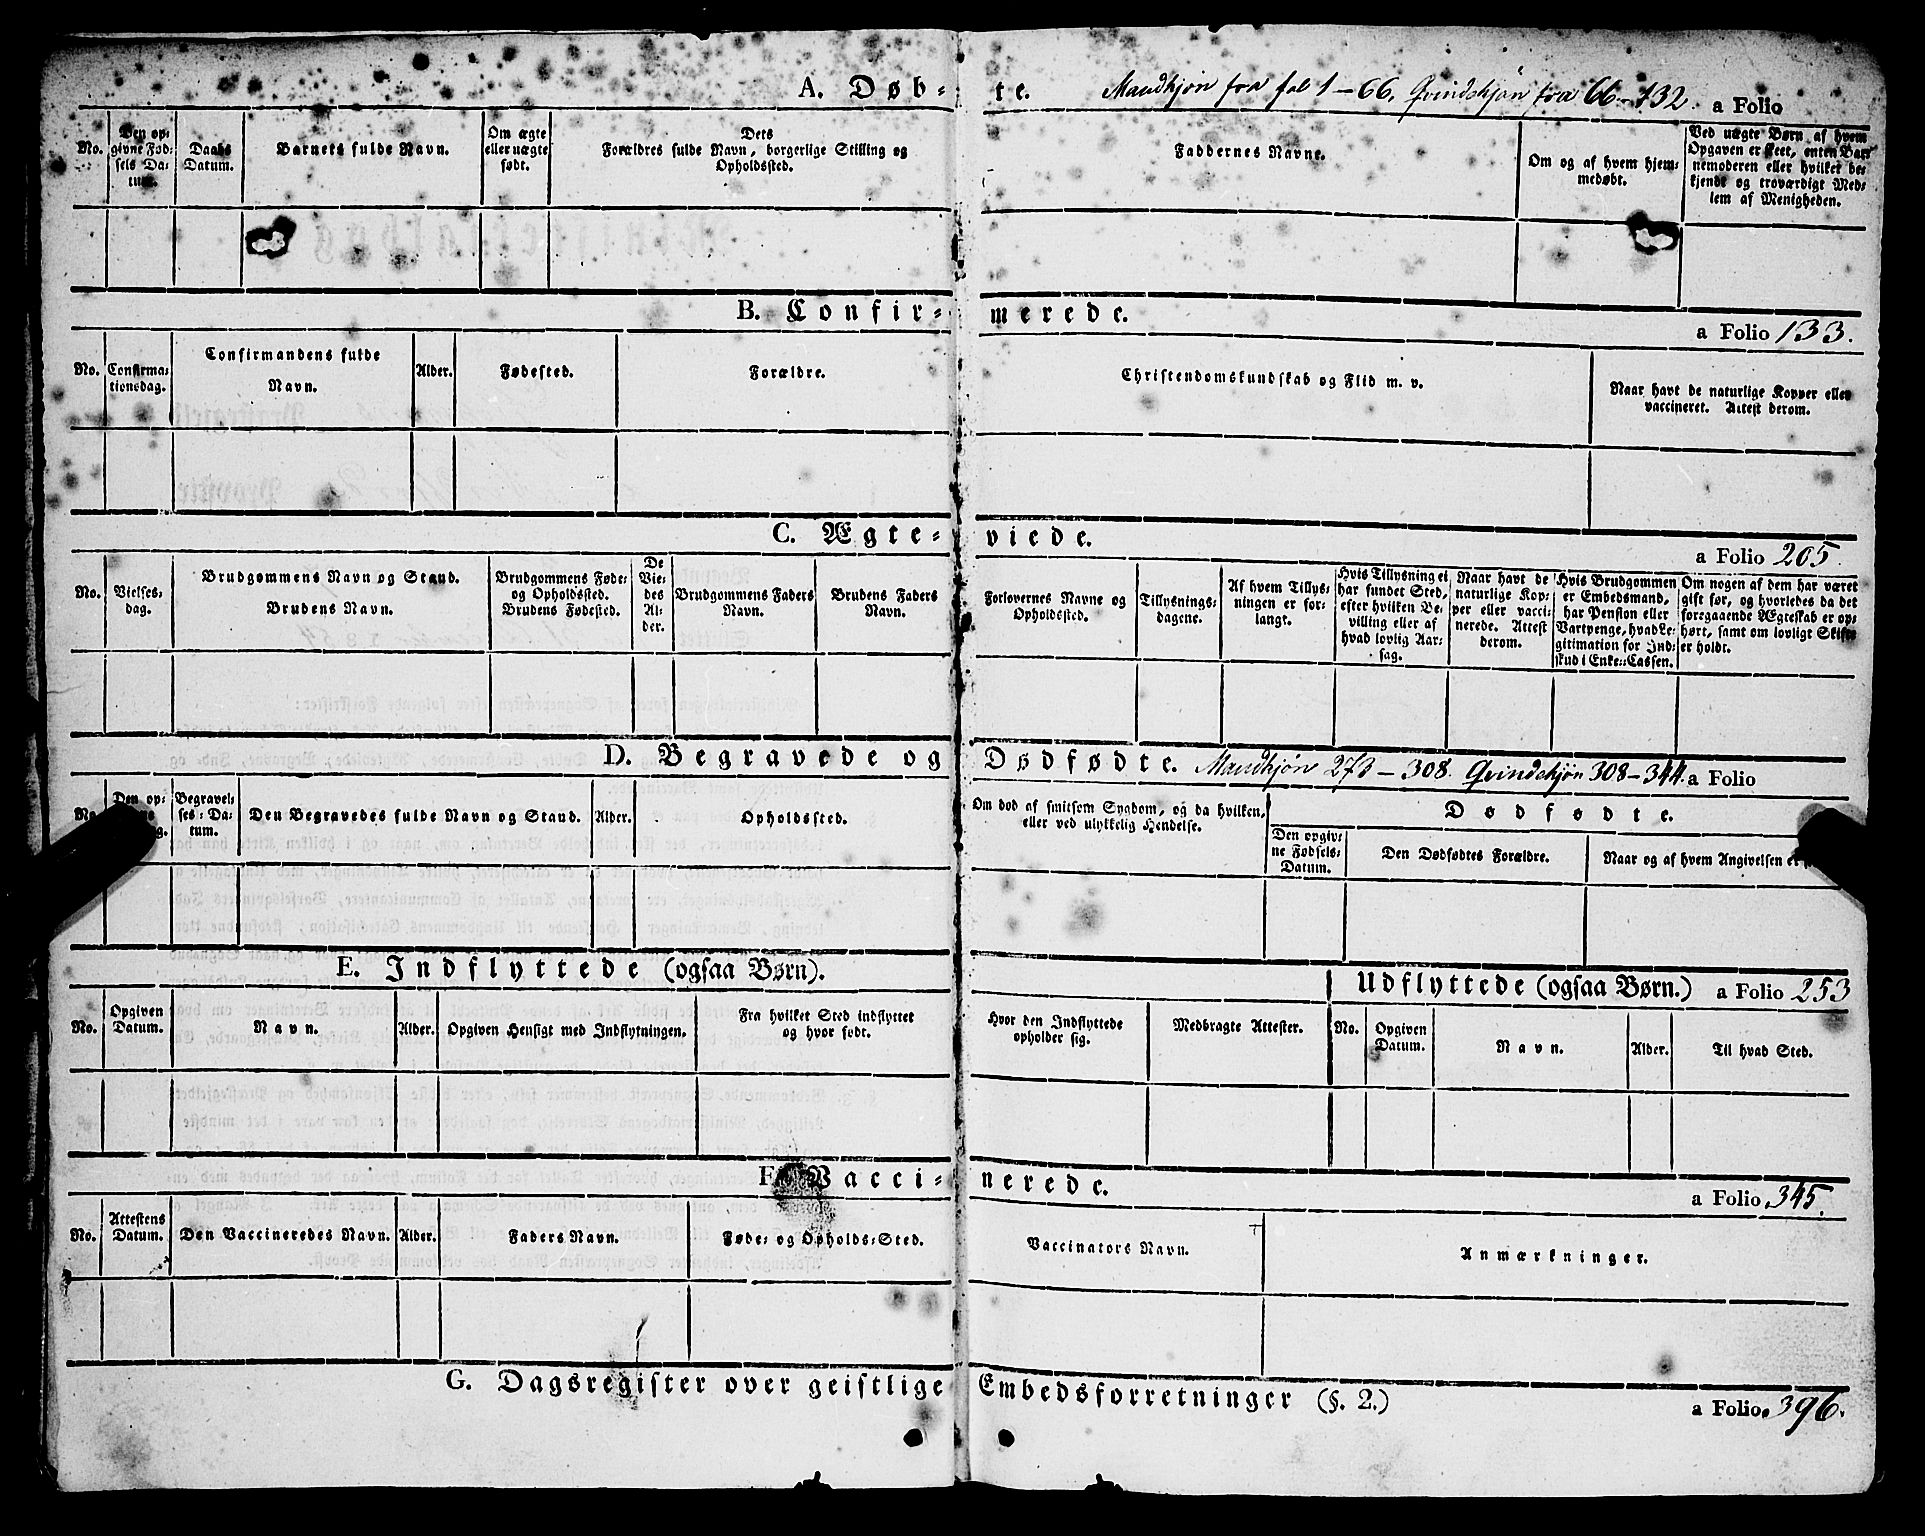 A. Døb- te. Mandkjön fra fol 1 – 66, Qvindekjön fra 66 – 132 a Folio
No.
Den op-
givne Fød-
sels Da-
tum.
Daabs
Datum.
Barnets fulde Navn.
Om ægte
eller uægte
født.
Dets
Forældres fulde Navn, borgerlige Stilling og
Opholdssted.
Faddernes Navne.
Om og af hvem hjem-
medøbt.
Ved uægte Børn af hvem
Opgaven er skeet, enten Bar-
nemoderen eller hvilket be-
kjendt og troværdigt Med-
lem af Menigheden.
B. Confir- merede. a Folio 133.
No.
Confirma-
tionsdag.
Confirmandens fulde
Navn.
Alder.
Fødested.
Forældre.
Christendomskundskab og Flid m. v.
Naar havt de naturlige Kopper eller
vaccineret. Attest derom.
C. Ægte- viede. a Folio 205.
No.
Vielses-
dag.
Brudgommens Navn og Stand.
Brudens Navn.
Brudgommens Føde-
og Opholdssted.
Brudens Fødested.
De
Vie-
des
Al-
der.
Brudgommens Faders
Navn.
Brudens Faders
Navn.
Forlovernes Navne og
Opholdssted.
Tillysnings-
dagene.
Af hvem Tillys-
ningen er for-
langt.
Hvis Tillysning ei
har fundet Sted,
efter hvilken Be-
villing eller af
hvad lovlig Aar-
sag.
Naar havt de
naturlige Kop-
per eller vacci-
nerede. Attest
derom.
Hvis Brudgommen
er Embedsmand,
har Pension eller
Vartpenge, hvad Le-
gitimation for Ind-
skud i Enke-Cassen.
Om nogen af dem har været
gift før, og hvorledes da det
foregaaende Ægteskab er op-
hørt, samt om lovligt Skifte
er holdt.
D. Begravede og Dødfødte. Mandkjön 273 – 308. Qvindekjön 308 – 344. a Folio
Den op-
Begravel-
ses-Da-
tum.
Den Begravedes fulde Navn og Stand.
Alder.
Opholdssted.
Om død af smitsom Sygdom, og da hvilken,
eller ved ulykkelig Hendelse.
Dødfødte.
Den opgiv-
ne Fødsels-
Datum.
Den Dødfødtes Forældre.
Naar og af hvem Angivelsen er
E. Indflyttede (ogsaa Børn). Udflyttede (ogsaa Børn.) a Folio 253
No.
Opgiven
Datum.
Navn.
Alder.
Opgiven Hensigt med Indflytningen.
Fra hvilket Sted indflyttet
og hvor født.
Hvor den Indflyttede
opholder sig.
Medbragte Attester.
No.
Opgiven
Datum.
Navn.
Alder.
Til hvad Sted.
F. Vacci- nerede. a Folio 345.
No.
Attestens
Datum.
Den Vaccineredes Navn.
Alder.
Faders Navn.
Føde- og Opholds-Sted.
Vaccinators Navn.
Anmærkninger.
G. Dagsregister over geistlige Embedsforretninger (§. 2.) a Folio 396.